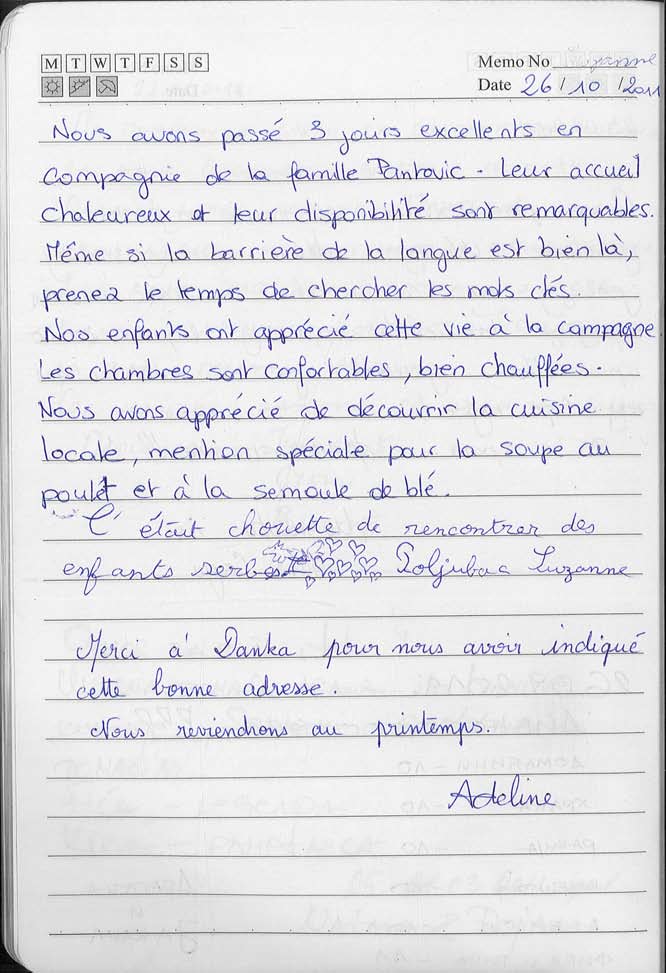 M T W T F S S
Memo No Suzanne
Date 26/10/2011
Nous avons passé 3 jours excellents en
compagnie de la famille Pantovic. Leur accueil
chaleureux et leur disponibilité sont remarquables.
Même si la barrière de la langue est bien là,
prenez le temps de chercher les mots clés.
Nos enfants ont apprécié cette vie à la campagne
Les chambres sont confortables, bien chauffées.
Nous avons apprécié de découvrir la cuisine
locale, mention spéciale pour la soupe au
poulet et à la semoule de blé.
C'était chouette de rencontrer des
enfants serbes Poljubac Suzanne
Merci à Danka pour nous avoir indiqué
cette bonne adresse.
Nous reviendrons au printemps.
Adeline